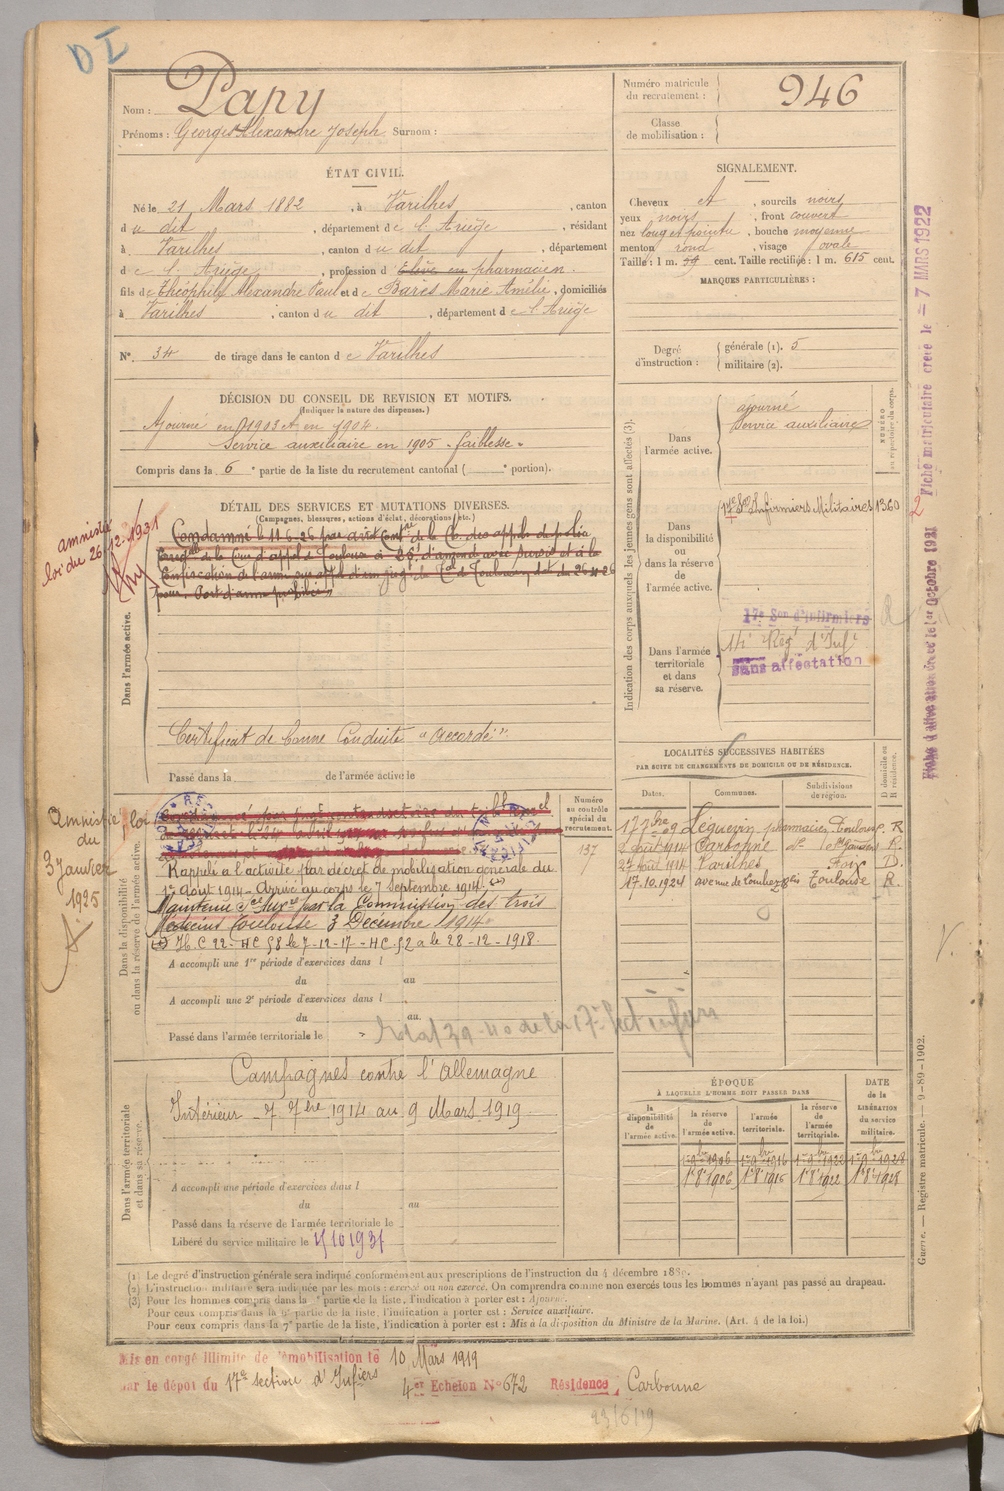 DI
Nom : Papy
Prénoms : Georges Alexandre Joseph Surnom :
Numéro matricule du recrutement : 946
Classe de mobilisation :
ÉTAT CIVIL.
Né le 21 Mars 1882, à Varilhes, canton
du dit, département de l'Ariège, résidant
à Varilhes, canton du dit, département
de l'Ariège, profession d'élève en pharmacien.
fils de Théophile Alexandre Paul et de Barès Marie Amélie, domiciliés
à Varilhes, canton du dit, département de l'Ariège
N° 34 de tirage dans le canton de Varilhes
SIGNALEMENT.
Cheveux et, sourcils noirs
yeux noirs, front couvert
nez long et pointu, bouche moyenne
menton rond, visage ovale
Taille : 1 m. 59 cent. Taille rectifiée : 1 m. 615 cent.
MARQUES PARTICULIÈRES :
Degré d'instruction : générale (1). 5
militaire (2).
DÉCISION DU CONSEIL DE REVISION ET MOTIFS.
(Indiquer la nature des dispenses.)
Ajourné en 1903 et en 1904.
Service auxiliaire en 1905 - faiblesse -
Compris dans la 6e partie de la liste du recrutement cantonal ( e portion).
DÉTAIL DES SERVICES ET MUTATIONS DIVERSES.
(Campagnes, blessures, actions d'éclat, décorations, etc.)
amnistie
loi du 26-12-1931
Dans l'armée active.
Condamné le 11-6-26 par arrêt de la Ch. des appels de police
de la Cour d'appel Toulouse à 25f d'amende avec sursis et à la
confiscation de l'arme
pour Port d'arme prohibée
Certificat de bonne Conduite "accordé".
Passé dans la de l'armée active le
Indication des corps auxquels les jeunes gens sont affectés (3).
Dans l'armée active.
ajourné
Service auxiliaire
NUMÉRO au répertoire du corps.
Dans la disponibilité ou dans la réserve de l'armée active.
17e Son Infirmiers Militaires 1360
Dans l'armée territoriale et dans sa réserve.
17e Son d'infirmiers
Rég' d'Inf'
Sans affectation
Amnistie loi
du
3 Janvier
1925
Dans la disponibilité ou dans la réserve de l'armée active.
Numéro au contrôle spécial du recrutement.
137
Rappelé à l'activité par décret de mobilisation générale du
1er août 1914 - Arrivé au corps le 7 septembre 1914.
Maintenu Sce Auxre par la Commission des trois
Médecins Toulouse 3 Décembre 1914
H.C 22 - HC §8 le 7-12-17 - HC §2 a le 28-12-1918.
A accompli une 1re période d'exercices dans l
du au
A accompli une 2e période d'exercices dans l
du au
Passé dans l'armée territoriale le
LOCALITÉS SUCCESSIVES HABITÉES
PAR SUITE DE CHANGEMENTS DE DOMICILE OU DE RÉSIDENCE.
Dates. Communes. Subdivisions de région. D domicile ou R résidence.
17 7bre 09 Léguevin pharmacien Toulouse. R
2 août 1914 Carbonne R.
27 août 1914 Varilhes Foix D.
17.10.1924 avenue de Lombez Toulouse R.
Dans l'armée territoriale et dans sa réserve.
Campagnes contre l'Allemagne
Intérieur - 7 7bre 1914 au 9 Mars 1919
A accompli une période d'exercices dans l
du au
Passé dans la réserve de l'armée territoriale le
Libéré du service militaire le
ÉPOQUE
À LAQUELLE L'HOMME DOIT PASSER DANS
DATE DE LA LIBÉRATION du service militaire.
la disponibilité de l'armée active. la réserve de l'armée active. l'armée territoriale. la réserve de l'armée territoriale.
1er 9bre 1906 1er 9bre 1916 1er 9bre 1922 1er 9bre 1928
1er 8 1906 1er 8 1916 1er 8 1922 1er 8 1928
(1) Le degré d'instruction générale sera indiqué conformément aux prescriptions de l'instruction du 4 décembre 1889.
(2) L'instruction militaire sera indiquée par les mots : exercé ou non exercé. On comprendra comme non exercés tous les hommes n'ayant pas passé au drapeau.
(3) Pour les hommes compris dans la 5e partie de la liste, l'indication à porter est : Ajourné.
Pour ceux compris dans la 6e partie de la liste, l'indication à porter est : Service auxiliaire.
Pour ceux compris dans la 7e partie de la liste, l'indication à porter est : Mis à la disposition du Ministre de la Marine. (Art. 4 de la loi.)
Mis en congé illimité de démobilisation le 10 Mars 1919
par le dépôt du 17e section d'Infiers 4er Echelon N° 672 Résidence, Carbonne
23/6/19
Fiche matriculaire créée le - 7 MARS 1922
Guerre. — Registre matricule. — 9-89-1902.